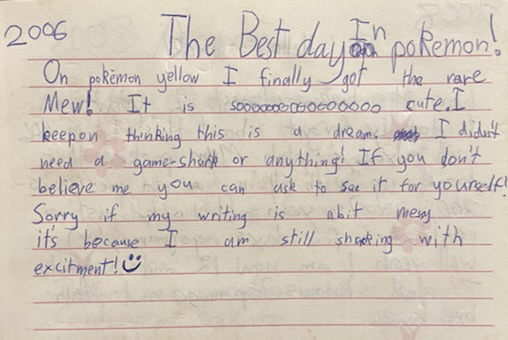 2006
The Best day In pokemon!
On pokémon yellow I finally got the rare
Mew! It is soooooooooooooooo cute. I
keep on thinking this is a dream. I didn't
need a game-shark or anything! If you don't
believe me you can ask to see it for yourself!
Sorry if my writing is abit messy
it's because I am still shaking with
excitment! ☺